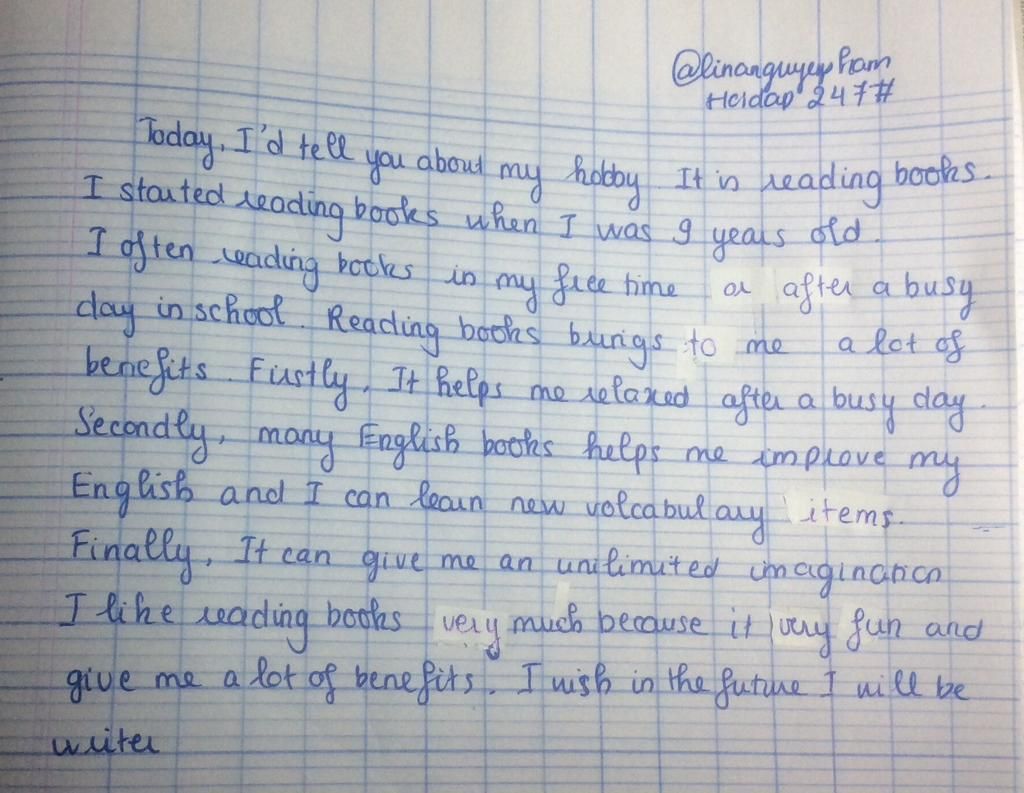 @linanguyenpham
Hoidap 247#
Today, I'd tell you about my hobby. It is reading books.
I started reading books when I was 9 years old.
I often reading books in my free time or after a busy
day in school. Reading books burigs to me a lot of
benefits. Firstly, It helps me relaxed after a busy day.
Secondly, many English books helps me improve my
English and I can learn new volcabulary items.
Finally, It can give me an unilimited imagination
I like reading books very much because it very fun and
give me a lot of benefits. I wish in the future I will be
writer